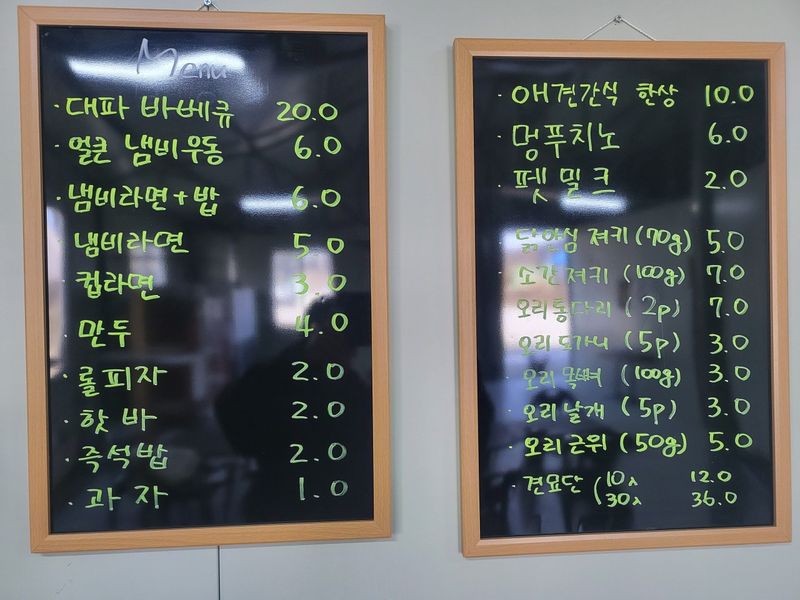 Menu
· 대파 바베큐 20.0
· 얼큰 냄비우동 6.0
· 냄비라면+밥 6.0
· 냄비라면 5.0
· 컵라면 3.0
· 만두 4.0
· 롤피자 2.0
· 핫바 2.0
· 즉석밥 2.0
· 과자 1.0
· 애견간식 한상 10.0
· 멍푸치노 6.0
· 펫밀크 2.0
· 닭안심 져키 (70g) 5.0
· 소간 져키 (100g) 7.0
· 오리통다리 (2p) 7.0
· 오리 도가니 (5p) 3.0
· 오리 목뼈 (100g) 3.0
· 오리 날개 (5p) 3.0
· 오리 근위 (50g) 5.0
· 견묘단 (10人 12.0
30人 36.0